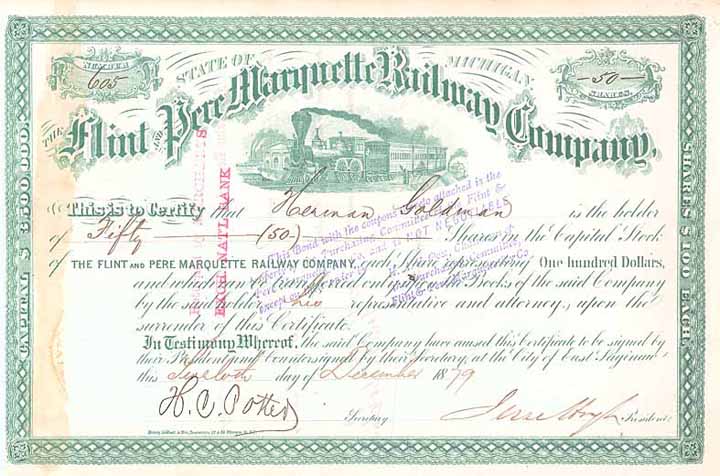 NUMBER
605
STATE OF MICHIGAN
50
SHARES
THE Flint AND Pere Marquette Railway Company,
This is to Certify that Herman Goldman is the holder
of Fifty (50) Shares in the Capital Stock
of THE FLINT AND PERE MARQUETTE RAILWAY COMPANY, each Share representing One hundred Dollars,
and which may be transferred only on the Books of the said Company
by the said holder, his representative and attorney, upon the
surrender of this Certificate.
In Testimony Whereof, the said Company have caused this Certificate to be signed by
their President and Countersigned by their Secretary, at the City of East Saginaw
this Twelfth day of December 1879
H. C. Potter Secretary
Jesse Hoyt President
CAPITAL $ 6500,000.
SHARES $ 100 EACH.
EXCH. NAT'L BANK
This Bond with the coupons attached is the
Purchasing Committee Flint &
and is NOT NEGOTIABLE
Flint &